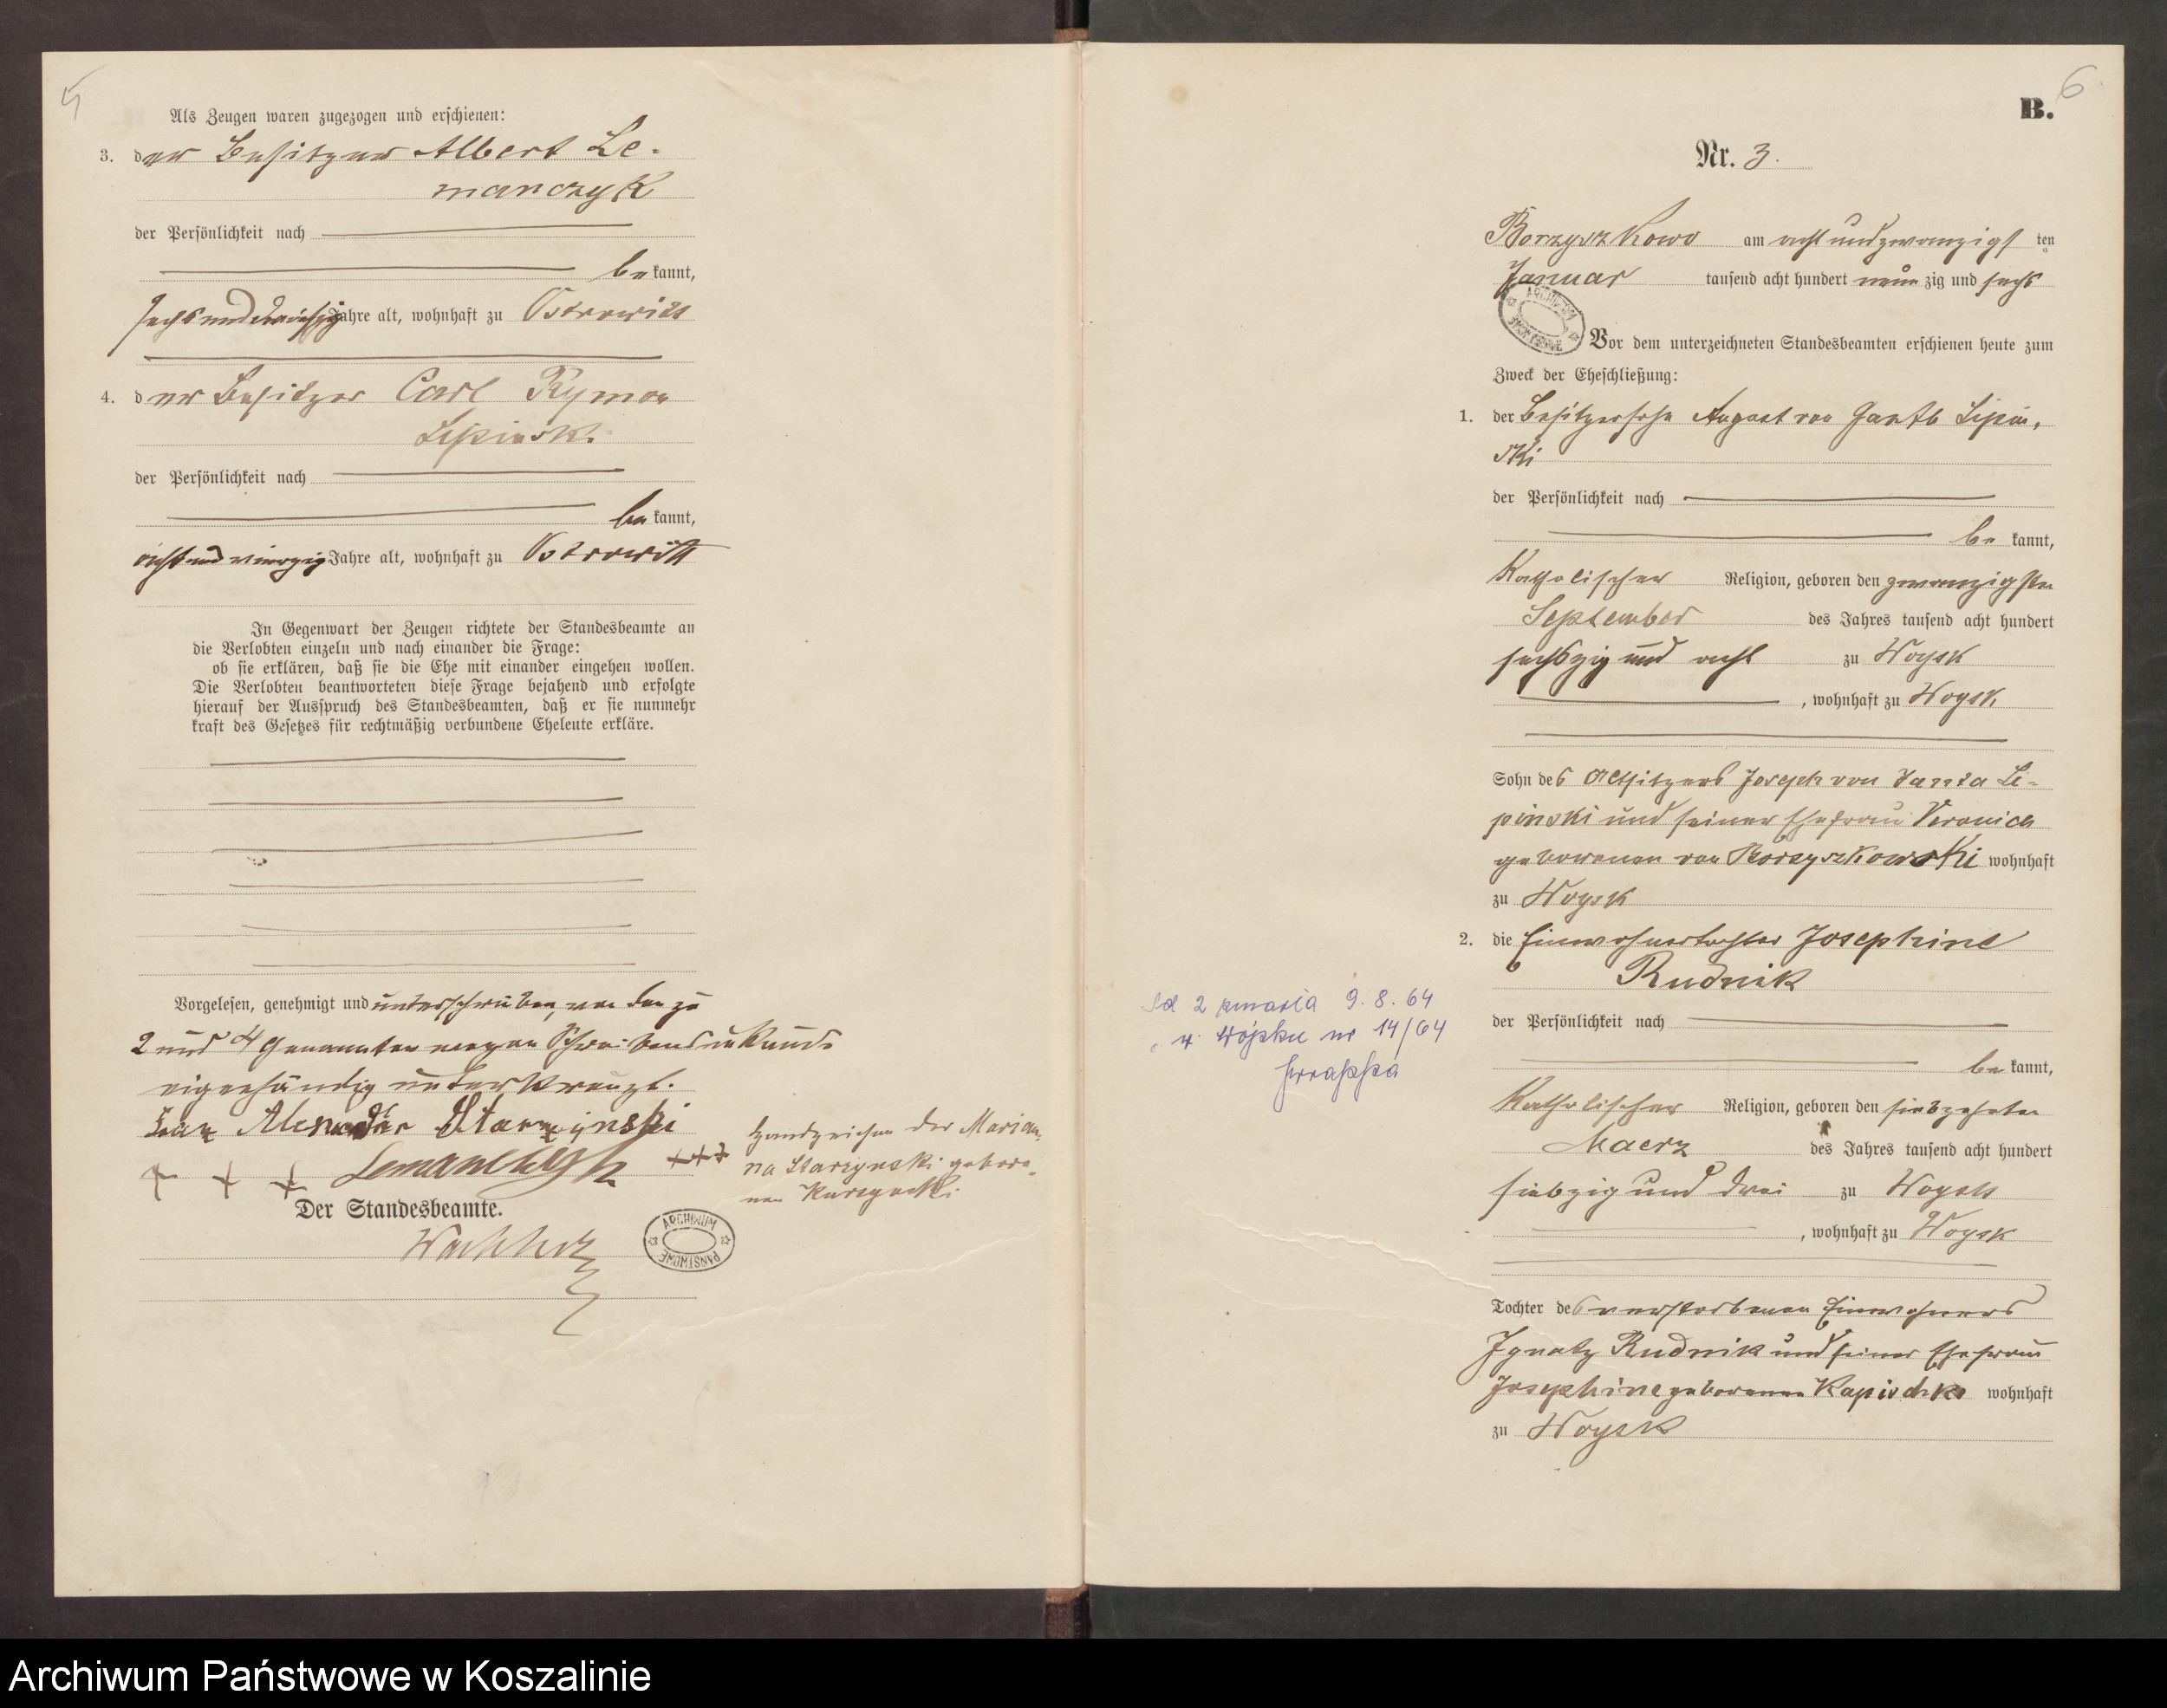 5
Als Zeugen waren zugezogen und erschienen:
3. der Besitzer Albert Le-
manczyk
der Persönlichkeit nach
bekannt,
sechsunddreißig Jahre alt, wohnhaft zu Ostrowitt
4. der Besitzer Carl Rymon
Lipinski
der Persönlichkeit nach
bekannt,
achtundvierzig Jahre alt, wohnhaft zu Ostrowitt
In Gegenwart der Zeugen richtete der Standesbeamte an
die Verlobten einzeln und nach einander die Frage:
ob sie erklären, daß sie die Ehe mit einander eingehen wollen.
Die Verlobten beantworteten diese Frage bejahend und erfolgte
hierauf der Ausspruch des Standesbeamten, daß er sie nunmehr
kraft des Gesetzes für rechtmäßig verbundene Eheleute erkläre.
Vorgelesen, genehmigt und unterschrieben, von den zu
2 und 4 Genannten wegen Schreibensunkunde
eigenhändig unterkreuzt.
Starzynski
+ + + Lemanczyk +++
Handzeichen der Marian-
na Starzynski gebore-
nen
Der Standesbeamte.
ARCHIWUM PAŃSTWOWE
B. 6
Nr. 3.
Borzyszkowo am achtundzwanzigsten
Januar tausend acht hundert neunzig und sechs
ARCHIWUM PAŃSTWOWE
Vor dem unterzeichneten Standesbeamten erschienen heute zum
Zweck der Eheschließung:
1. der Besitzersohn August von Janta Lipin-
ski
der Persönlichkeit nach
bekannt,
Katholischer Religion, geboren den zwanzigsten
September des Jahres tausend acht hundert
sechszig und acht zu Woysk
, wohnhaft zu Woysk
Sohn des Besitzers Joseph von Janta Li-
pinski und seiner Ehefrau Veronica
geborenen von Borzyszkowski wohnhaft
zu Woysk
2. die Einwohnertochter Josephine
Rudnik
der Persönlichkeit nach
bekannt,
Katholischer Religion, geboren den siebzehnten
Maerz des Jahres tausend acht hundert
siebzig und drei zu Woysk
, wohnhaft zu Woysk
Tochter des verstorbenen Einwohners
Ignatz Rudnik und seiner Ehefrau
Josephine geborenen Kapischke wohnhaft
zu Woysk
Ad 2 zmarła 9.8.64
w Wójsku nr 14/64
Archiwum Państwowe w Koszalinie